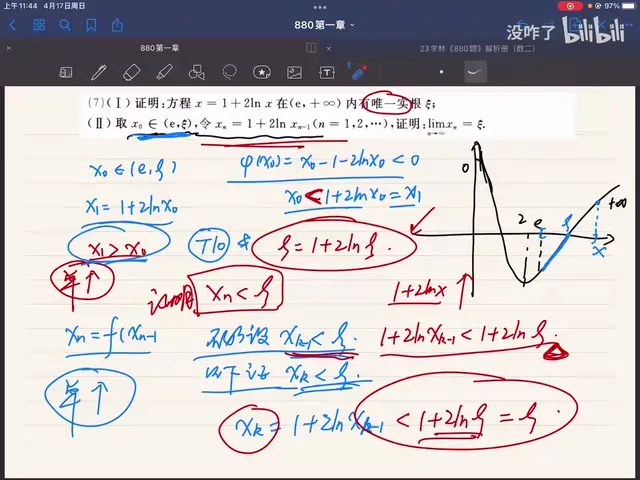 上午11:44 4月17日周日
97%
880第一章
没咋了 bilibili
880第一章
23宇林《880题》解析册（数二）
(7)(Ⅰ)证明:方程 x=1+2ln x 在(e,+∞)内有唯一实根 ξ;
(Ⅱ)取 x₀∈(e,ξ),令 xₙ=1+2ln xₙ₋₁(n=1,2,⋯),证明:lim xₙ=ξ.
n→∞
x₀∈(e,ξ)
φ(x₀)=x₀-1-2lnx₀<0
x₁=1+2lnx₀
x₀<1+2lnx₀=x₁
x₁>x₀
ξ=1+2lnξ.
0
2
e
ξ
x
+∞
单↑
xₙ<ξ
1+2lnx ↑
xₙ=f(xₙ₋₁
xₖ₋₁<ξ.
1+2lnxₖ₋₁<1+2lnξ.
单↑
以下证 xₖ<ξ.
xₖ=1+2lnxₖ₋₁<1+2lnξ=ξ.